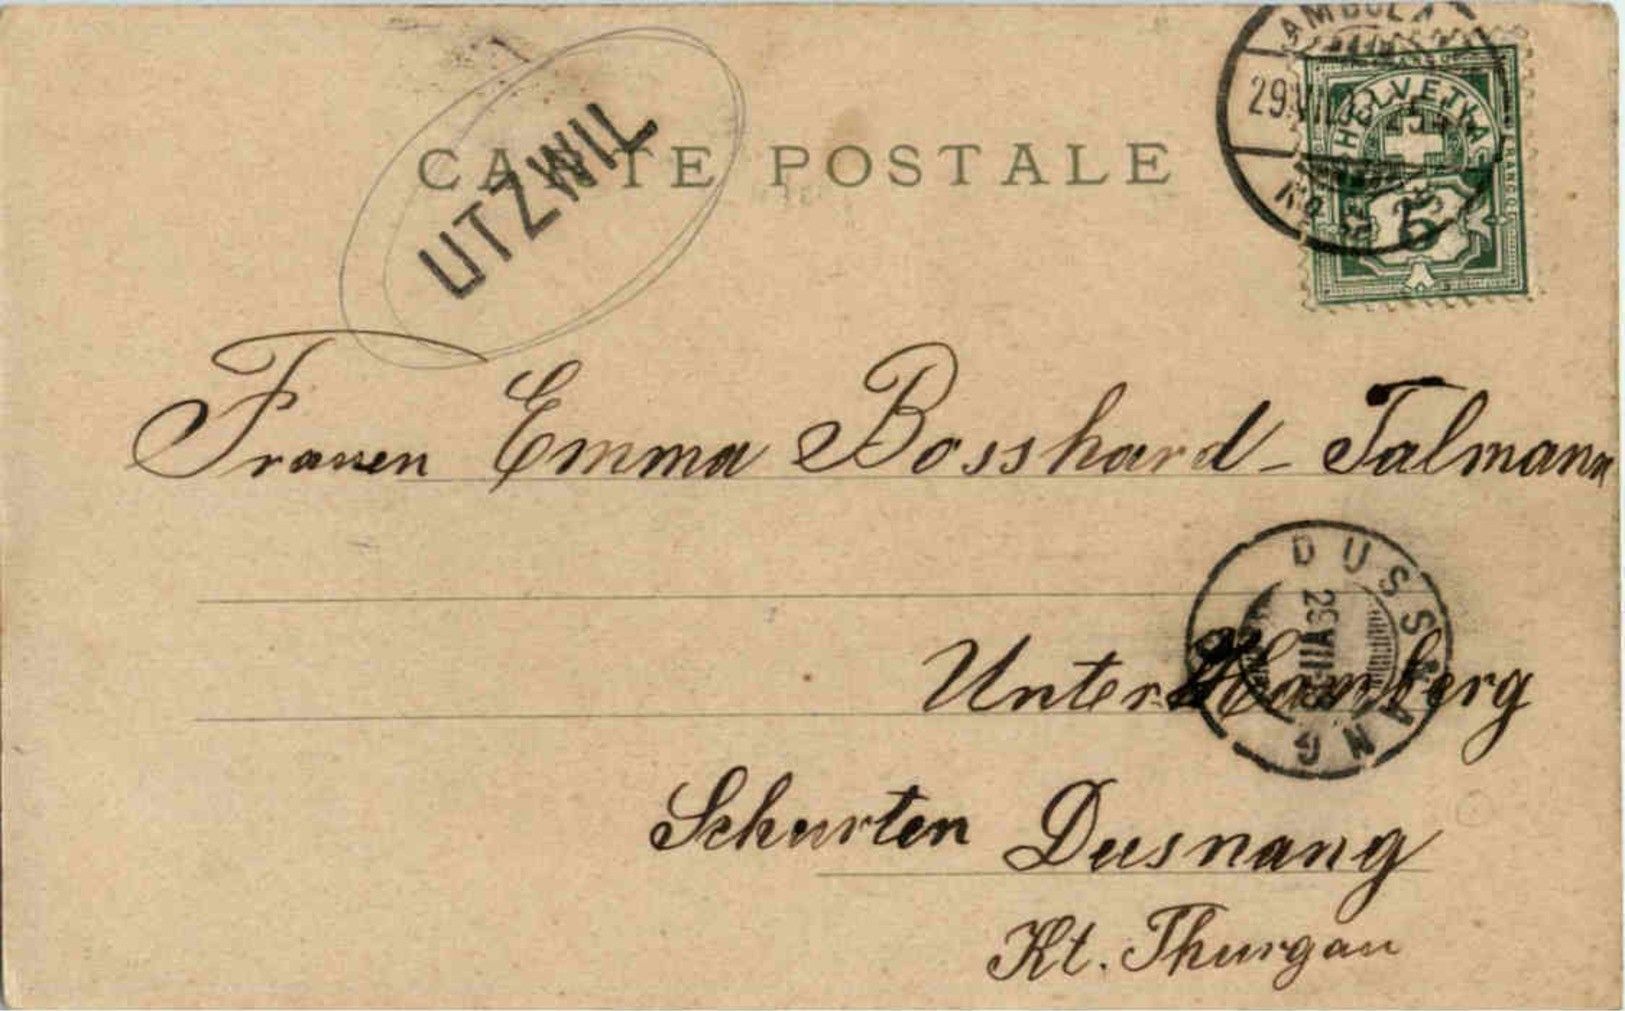 AMBULA
29.VII.03
HELVETIA
5
CARTE POSTALE
UTZWIL
Frauen Emma Bosshard-Talmann
DUSSNANG
29.VII
Unter Hamberg
Schurten Dusnang
Kt. Thurgau